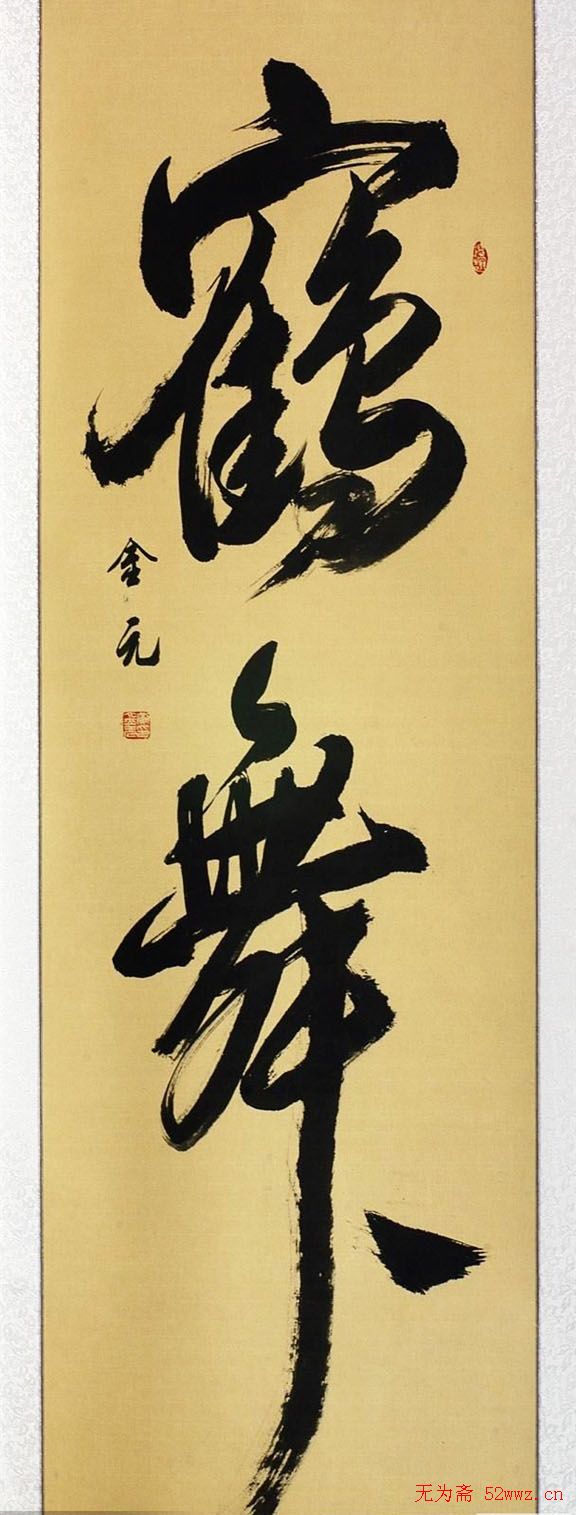 鶴
舞
金元
无为斋 52wwz.cn